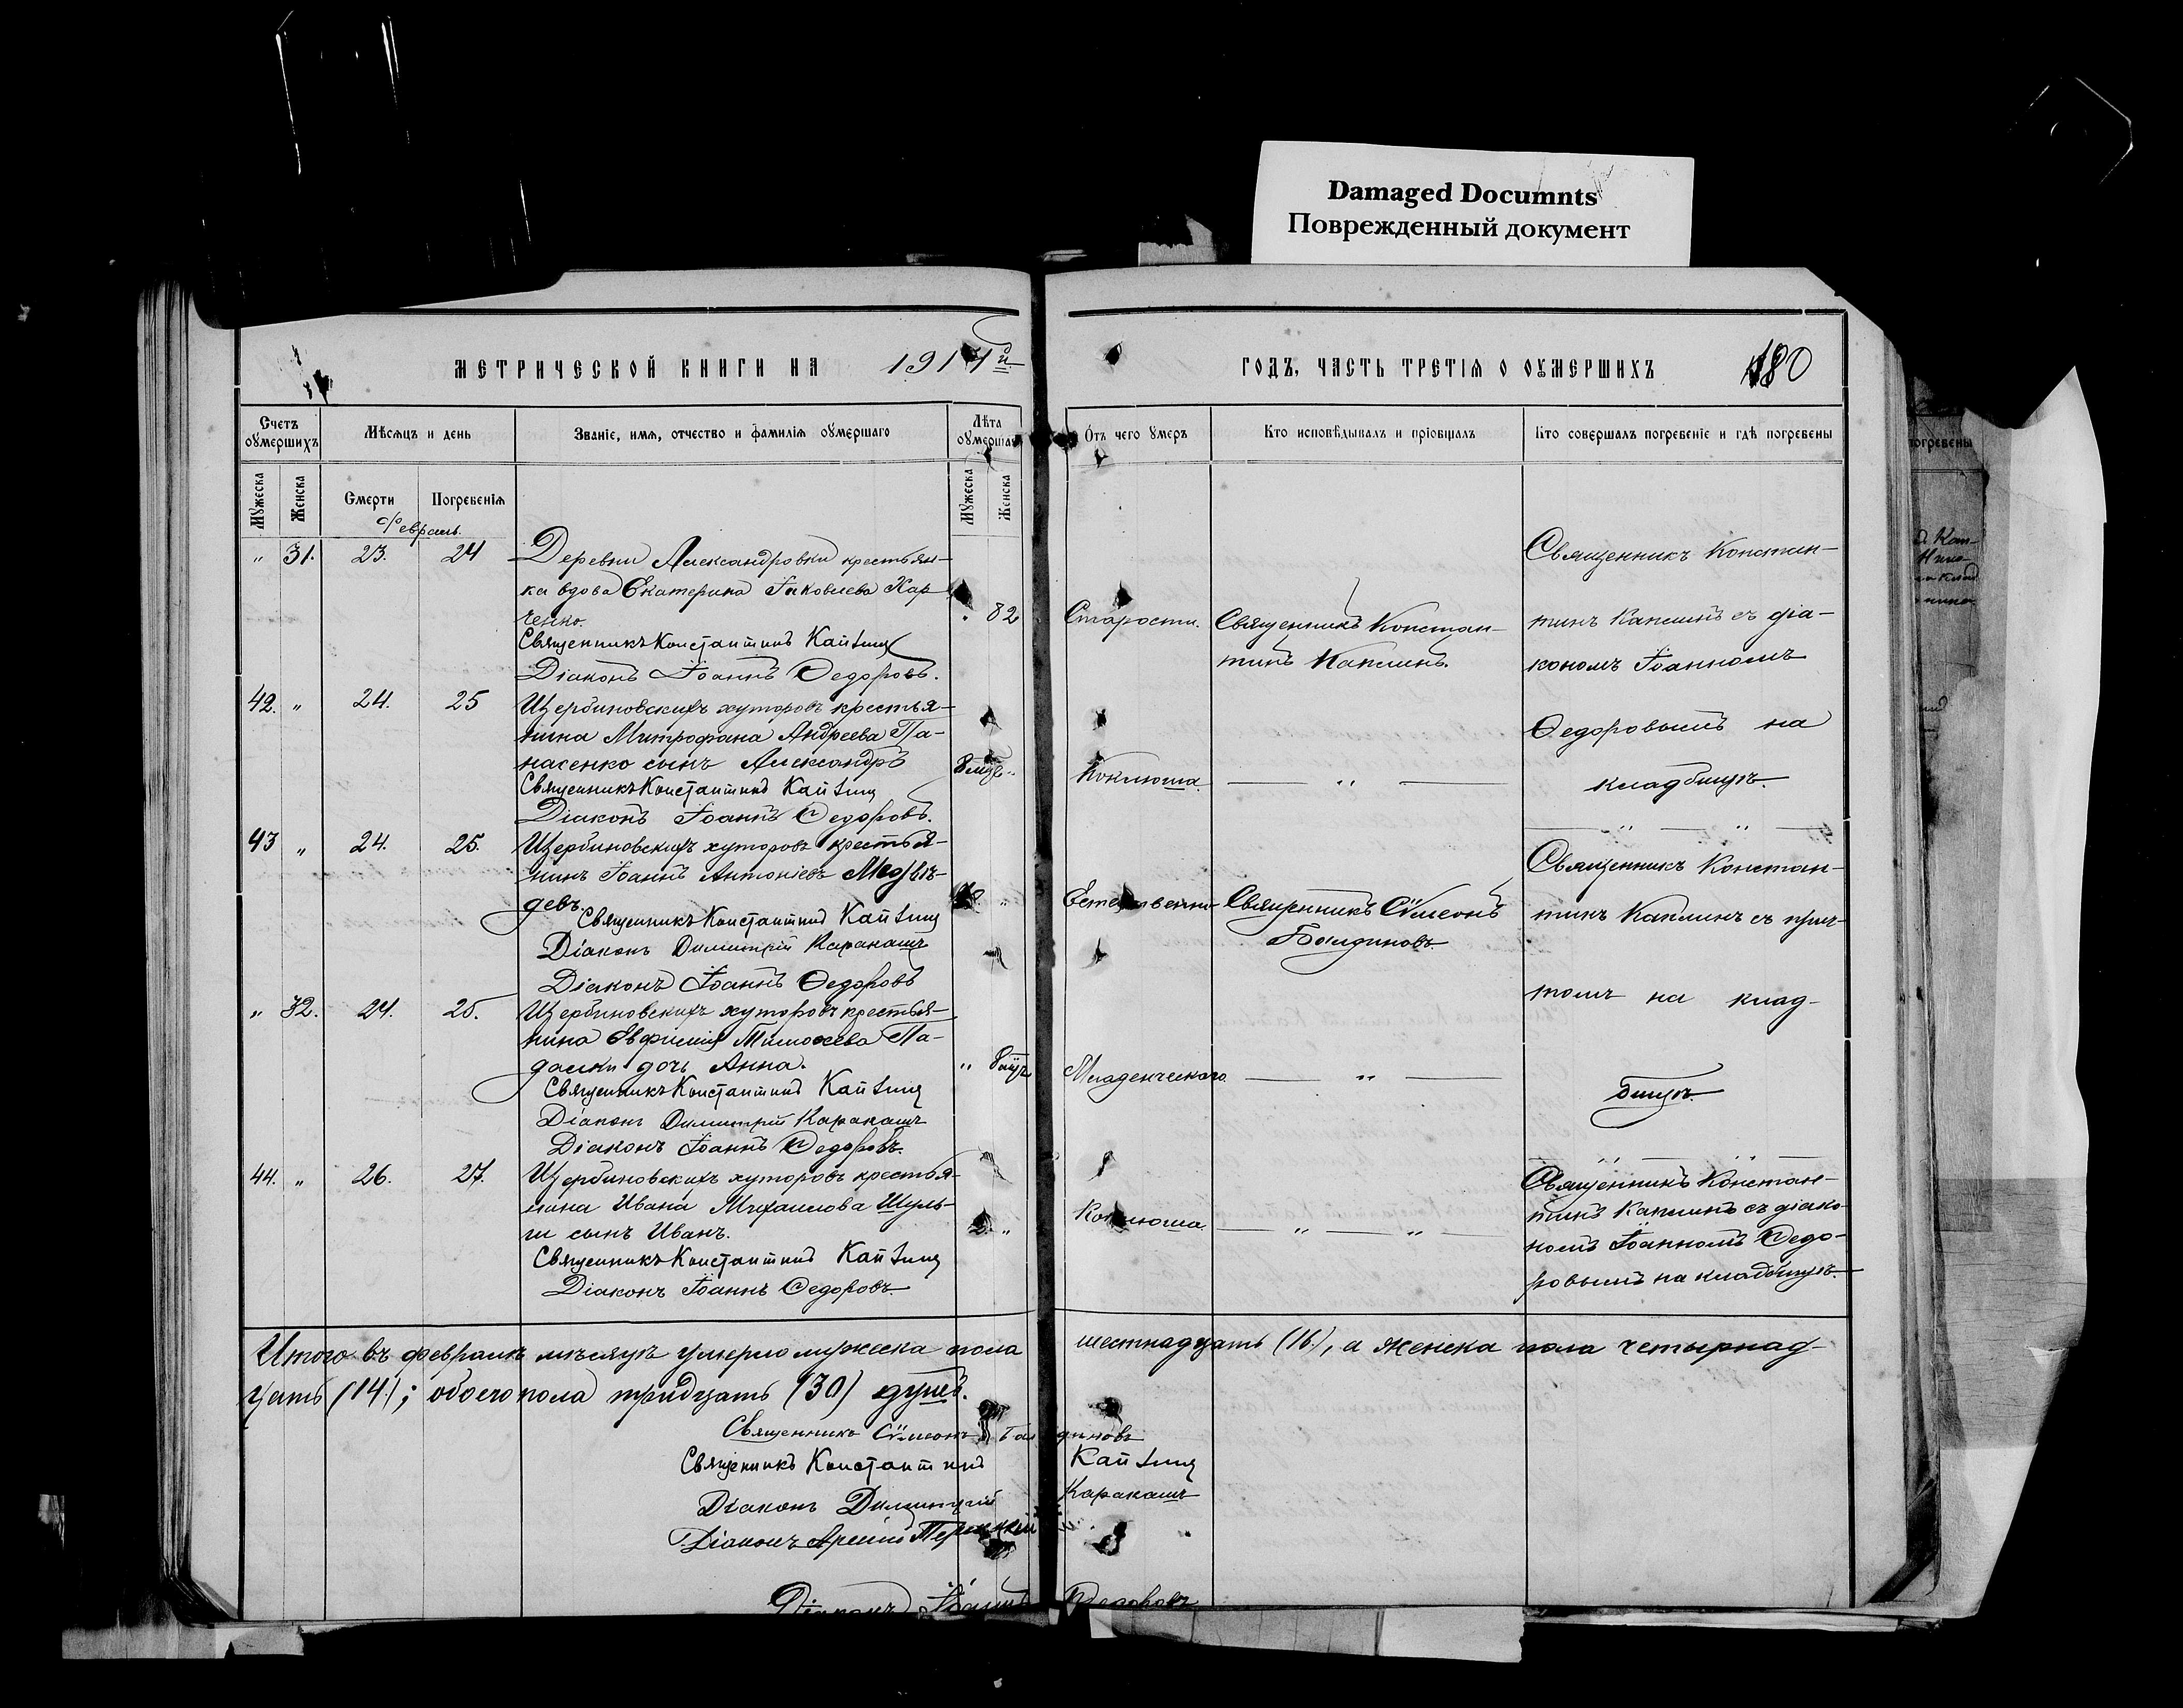 Damaged Documnts
Поврежденный документ
МЕТРИЧЕСКОЙ КНИГИ НА 1914й
ГОДЪ, ЧАСТЬ ТРЕТІѦ О ОУМЕРШИХЪ 180
Счетъ оумершихъ
Мѣсяцъ и день
Званіе, имѧ, отчество и фамиліѧ оумершаго
Лѣта оумершаго
Отъ чего умеръ
Кто исповѣдывалъ и пріобщалъ
Кто совершалъ погребеніе и гдѣ погребены
Мужеска
Женска
Смерти
Погребеніѧ
Мужеска
Женска
Февраль.
" 31. 23. 24
Деревни Александровки крестьян-
ка вдова Екатерина Іаковлева Хар-
ченко.
Священникъ Константинъ Каплинъ
Діаконъ Іоаннъ Ѳедоровъ.
" 82
Старости.
Священникъ Констан-
тинъ Каплинъ.
Священникъ Констан-
тинъ Каплинъ съ діа-
кономъ Іоанномъ
Ѳедоровымъ на
кладбищѣ.
42. " 24. 25
Щербиновскихъ хуторовъ крестья-
нина Митрофана Андреева Па-
насенко сынъ Александръ
Священникъ Константинъ Каплинъ
Діаконъ Іоаннъ Ѳедоровъ.
Коклюша.
— " —
— " — " —
43 " 24. 25.
Щербиновскихъ хуторовъ крестья-
нинъ Іоаннъ Антоніевъ Медвѣ-
девъ.
Священникъ Константинъ Каплинъ
Діаконъ Димитрій Каракашъ
Діаконъ Іоаннъ Ѳедоровъ
Священникъ Сѵмеонъ
Балдиновъ.
Священникъ Констан-
тинъ Каплинъ съ прич-
томъ на клад-
бищѣ.
" 32. 24. 25.
Щербиновскихъ хуторовъ крестья-
нина Евфимія Тимоѳеева Па-
далки дочь Анна.
Священникъ Константинъ Каплинъ
Діаконъ Димитрій Каракашъ
Діаконъ Іоаннъ Ѳедоровъ.
Младенческаго.
— " —
— " — " —
44. " 26. 27.
Щербиновскихъ хуторовъ крестья-
нина Ивана Михаилова Шуль-
ги сынъ Иванъ.
Священникъ Константинъ Каплинъ
Діаконъ Іоаннъ Ѳедоровъ.
2. "
Коклюша.
— " — " —
Священникъ Констан-
тинъ Каплинъ съ діако-
номъ Іоанномъ Ѳедо-
ровымъ на кладбищѣ.
Итого въ февралѣ мѣсяцѣ умерло мужеска пола шестнадцать (16), а женска пола четырнад-
цать (14); обоего пола тридцать (30) душъ.
Священникъ Сѵмеонъ Балдиновъ
Священникъ Константинъ Каплинъ
Діаконъ Димитрій Каракашъ
Діаконъ
Діаконъ Іоаннъ Ѳедоровъ